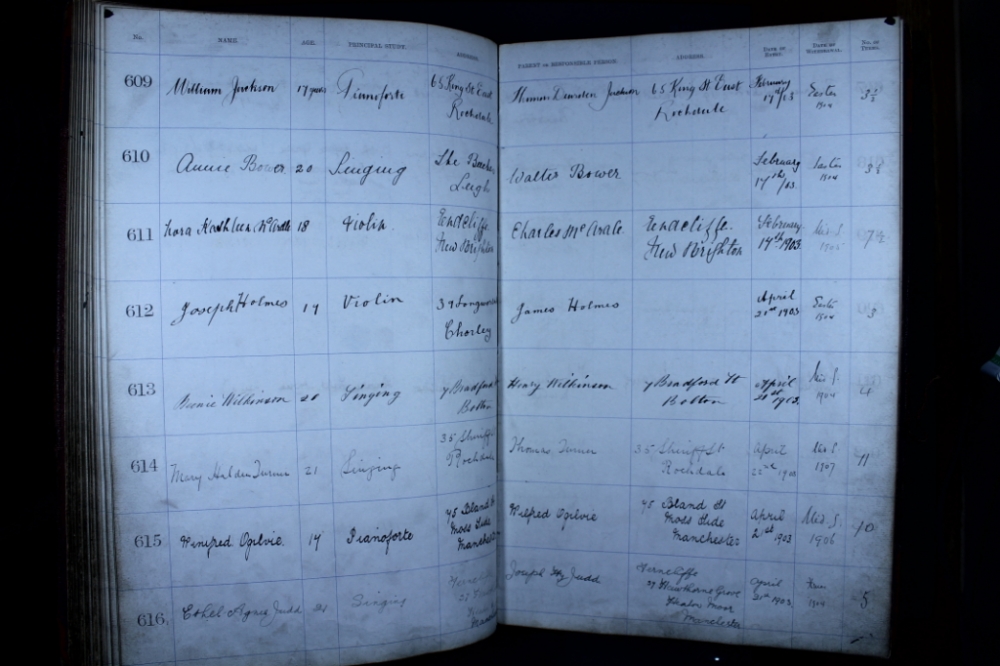 No. NAME. AGE. PRINCIPAL STUDY. ADDRESS. PARENT OR RESPONSIBLE PERSON. ADDRESS. DATE OF ENTRY. DATE OF WITHDRAWAL. No. OF TERMS.
609 William Jackson 17 years Pianoforte 65 King St East Thomas Dearden Jackson 65 King St East February Easter 3
Rochdale Rochdale 17th/03 1904
610 Annie Bower 20 Singing The Beeches Wallis Bower February Easter 3
Leigh 17th/03. 1904
611 Nora Kathleen McArdle 18 Violin. Endcliffe Charles McArdle. Endcliffe. February Mid S. 7½
New Brighton New Brighton 17th 1903.
612 Joseph Holmes 19 Violin 39 James Holmes April Easter 3
Chorley 21st 1903 1904
613 Wilkinson 20 Singing 7 Bradford St Henry Wilkinson 7 Bradford St April Mid S. 4
Bolton Bolton 21st 1903. 1904
614 Mary Turner 21 Singing 35 Sheriff St Thomas Turner 35 Sheriff St April Mid S 11
Rochdale Rochdale 1903 1907
615 Winifred Ogilvie. 19 Pianoforte 45 Bland St Wilfred Ogilvie 45 Bland St April Mid. S. 10
Moss Side Moss Side 21st 1903 1906
Manchester Manchester
616. Ethel Agnes Judd Singing Joseph Judd Ferncliffe April 5
27 Hawthorne Grove 21st 1903. 1904
Heaton Moor
Manchester Manchester